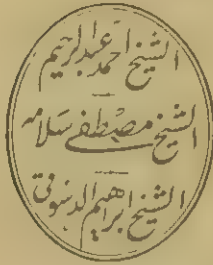 الشيخ احمد عبدالرحيم
الشيخ مصطفى سلامه
الشيخ ابراهيم الدسوقى